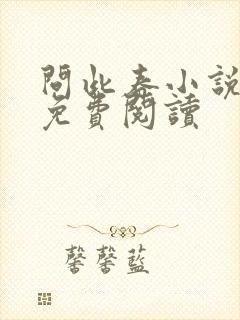 問此春小說
免費閱讀
馨馨藍